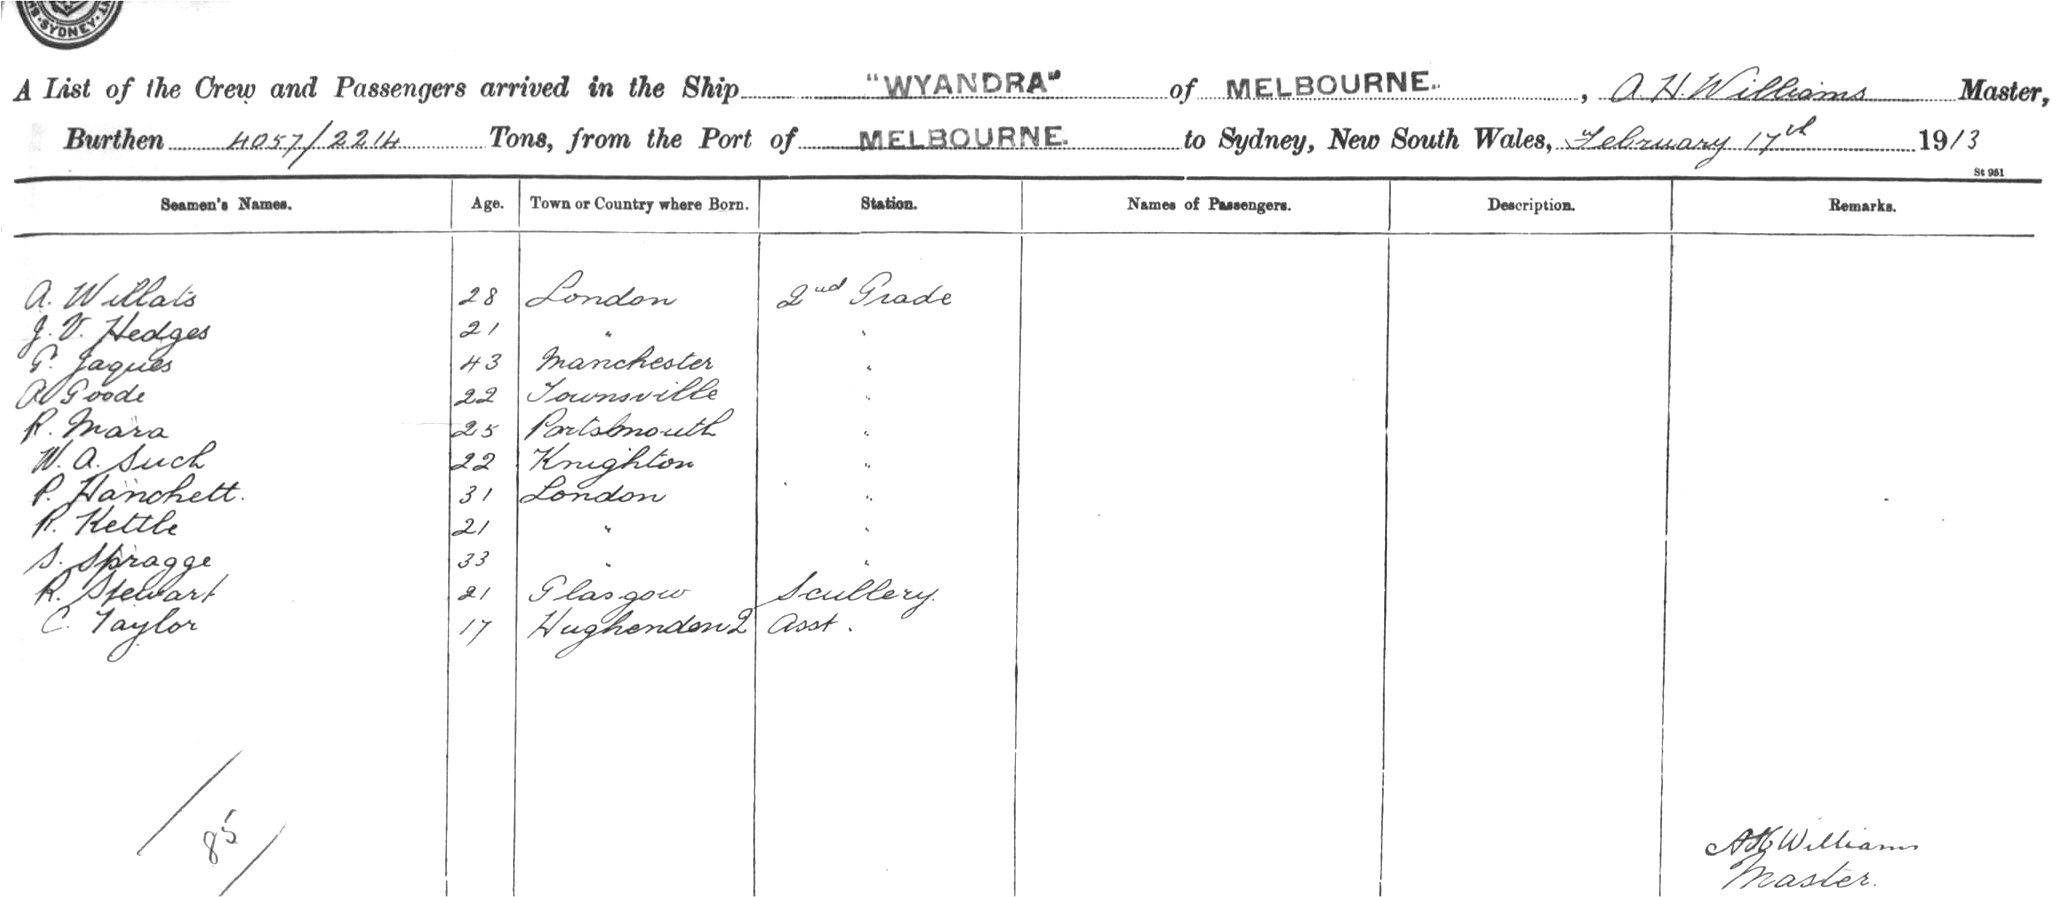 SYDNEY
A List of the Crew and Passengers arrived in the Ship "WYANDRA" of MELBOURNE., A. H. Williams Master,
Burthen 4057/2214 Tons, from the Port of MELBOURNE. to Sydney, New South Wales, February 17th 1913
St 951
Seamen's Names. Age. Town or Country where Born. Station. Names of Passengers. Description. Remarks.
A. Willats 28 London 2nd Grade
J. V. Hedges 21 " "
G. Jaques 43 Manchester "
A. Goode 22 Townsville "
R. Mara 25 Portsmouth "
W. A. Such 22 Knighton "
P. Hanchett. 31 London "
R. Kettle 21 " "
S. Spragge 33 " "
R. Stewart 21 Glasgow Scullery.
C. Taylor 17 Hughenden Q Asst.
85
A H Williams
Master.